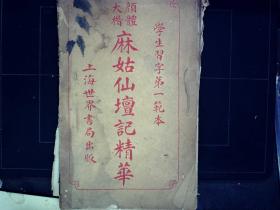 學生習字第一範本
顏體大楷
麻姑仙壇記精華
上海世界書局出版